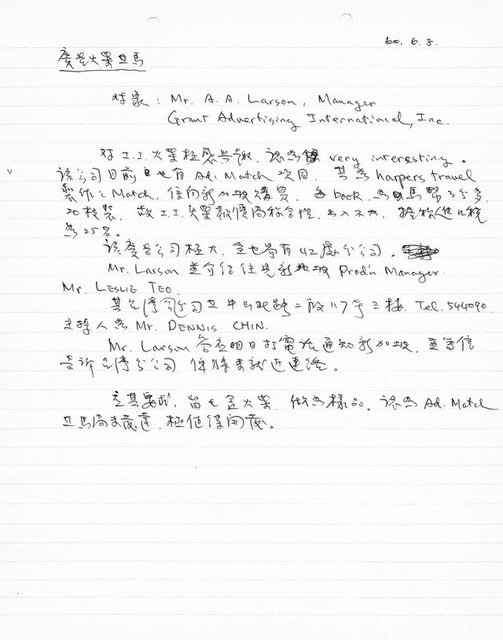 60. 6. 8.
廣告火柴在馬
对象: Mr. A. A. Larson, Manager
Grant Advertising International, Inc.
对 I.I. 火柴極感興趣, 認為 very interesting.
該公司目前也有 Ad. Match 項目, 為 harpers travel
製作 Match, 係向新加坡購買, 每 book 為馬幣
20枝裝, 故 I.I. 火柴報價尚稱合理, 出入不大,
為25%.
該廣告公司極大, 全世界有42處分公司.
Mr. Larson 並介紹往見新加坡 Prod'n Manager
Mr. LESLIE TEO.
其台灣分公司在中山北路二段117号三樓. Tel. 544090.
主持人為 Mr. DENNIS CHIN.
Mr. Larson 答應明日打電話通知新加坡, 並寫信
告訴台灣分公司 俾將來就近連絡.
應其要求, 留七盒火柴, 做為樣品. 認為 Ad. Match
在馬尚未發達, 極值得開發.